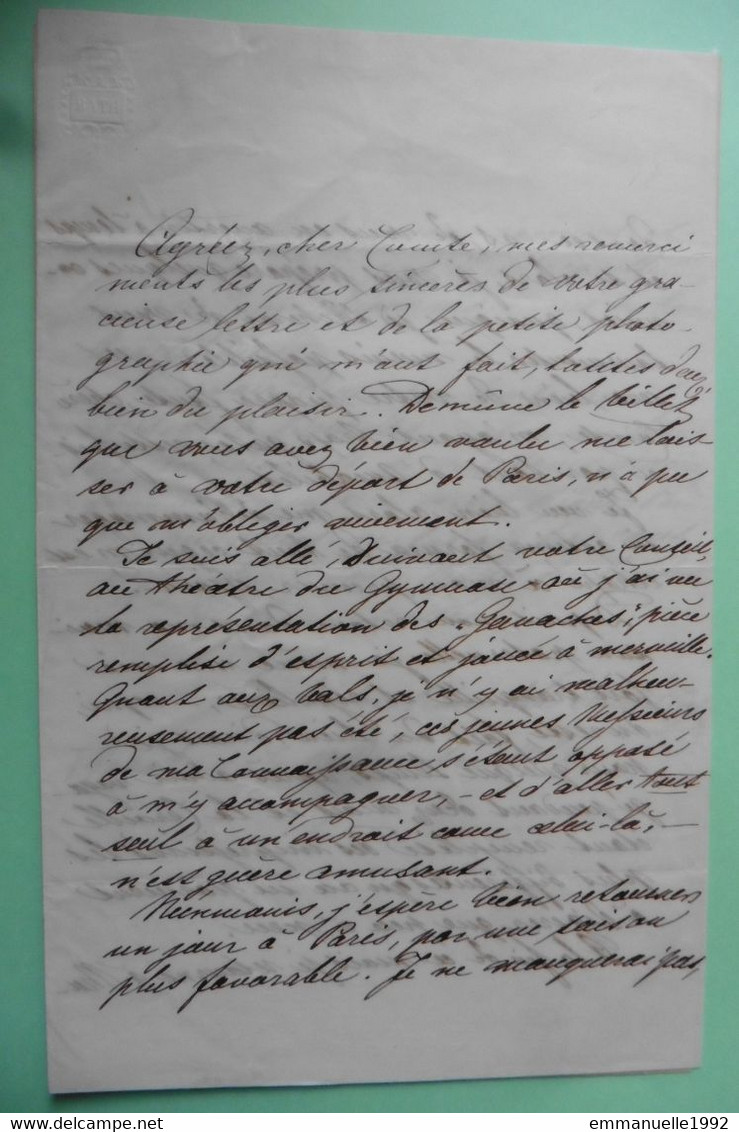 Agréez, cher Comte, mes remerci
ments les plus sincères de votre gra-
cieuse lettre et de la petite photo
graphie qui m'ont fait, toutes deux,
bien du plaisir. De même le billet
que vous avez bien voulu me lais-
ser à votre départ de Paris, n'a pu
que m'obliger vivement.
Je suis allé, suivant votre Conseil,
au théâtre du Gymnase où j'ai vu
la représentation des "Ganaches", pièce
remplise d'esprit et jouée à merveille.
Quant aux bals, je n'y ai malheu-
reusement pas été, ces jeunes Messieurs
de ma Connaissance, s'étant opposé
à m'y accompagner, - et d'aller tout
seul à un endroit come celui-là, -
n'est guère amusant.
Néonmonis, j'espère bien retourner
un jour à Paris, par une saison
plus favorable. Je ne manquerai pas,
emmanuelle1992